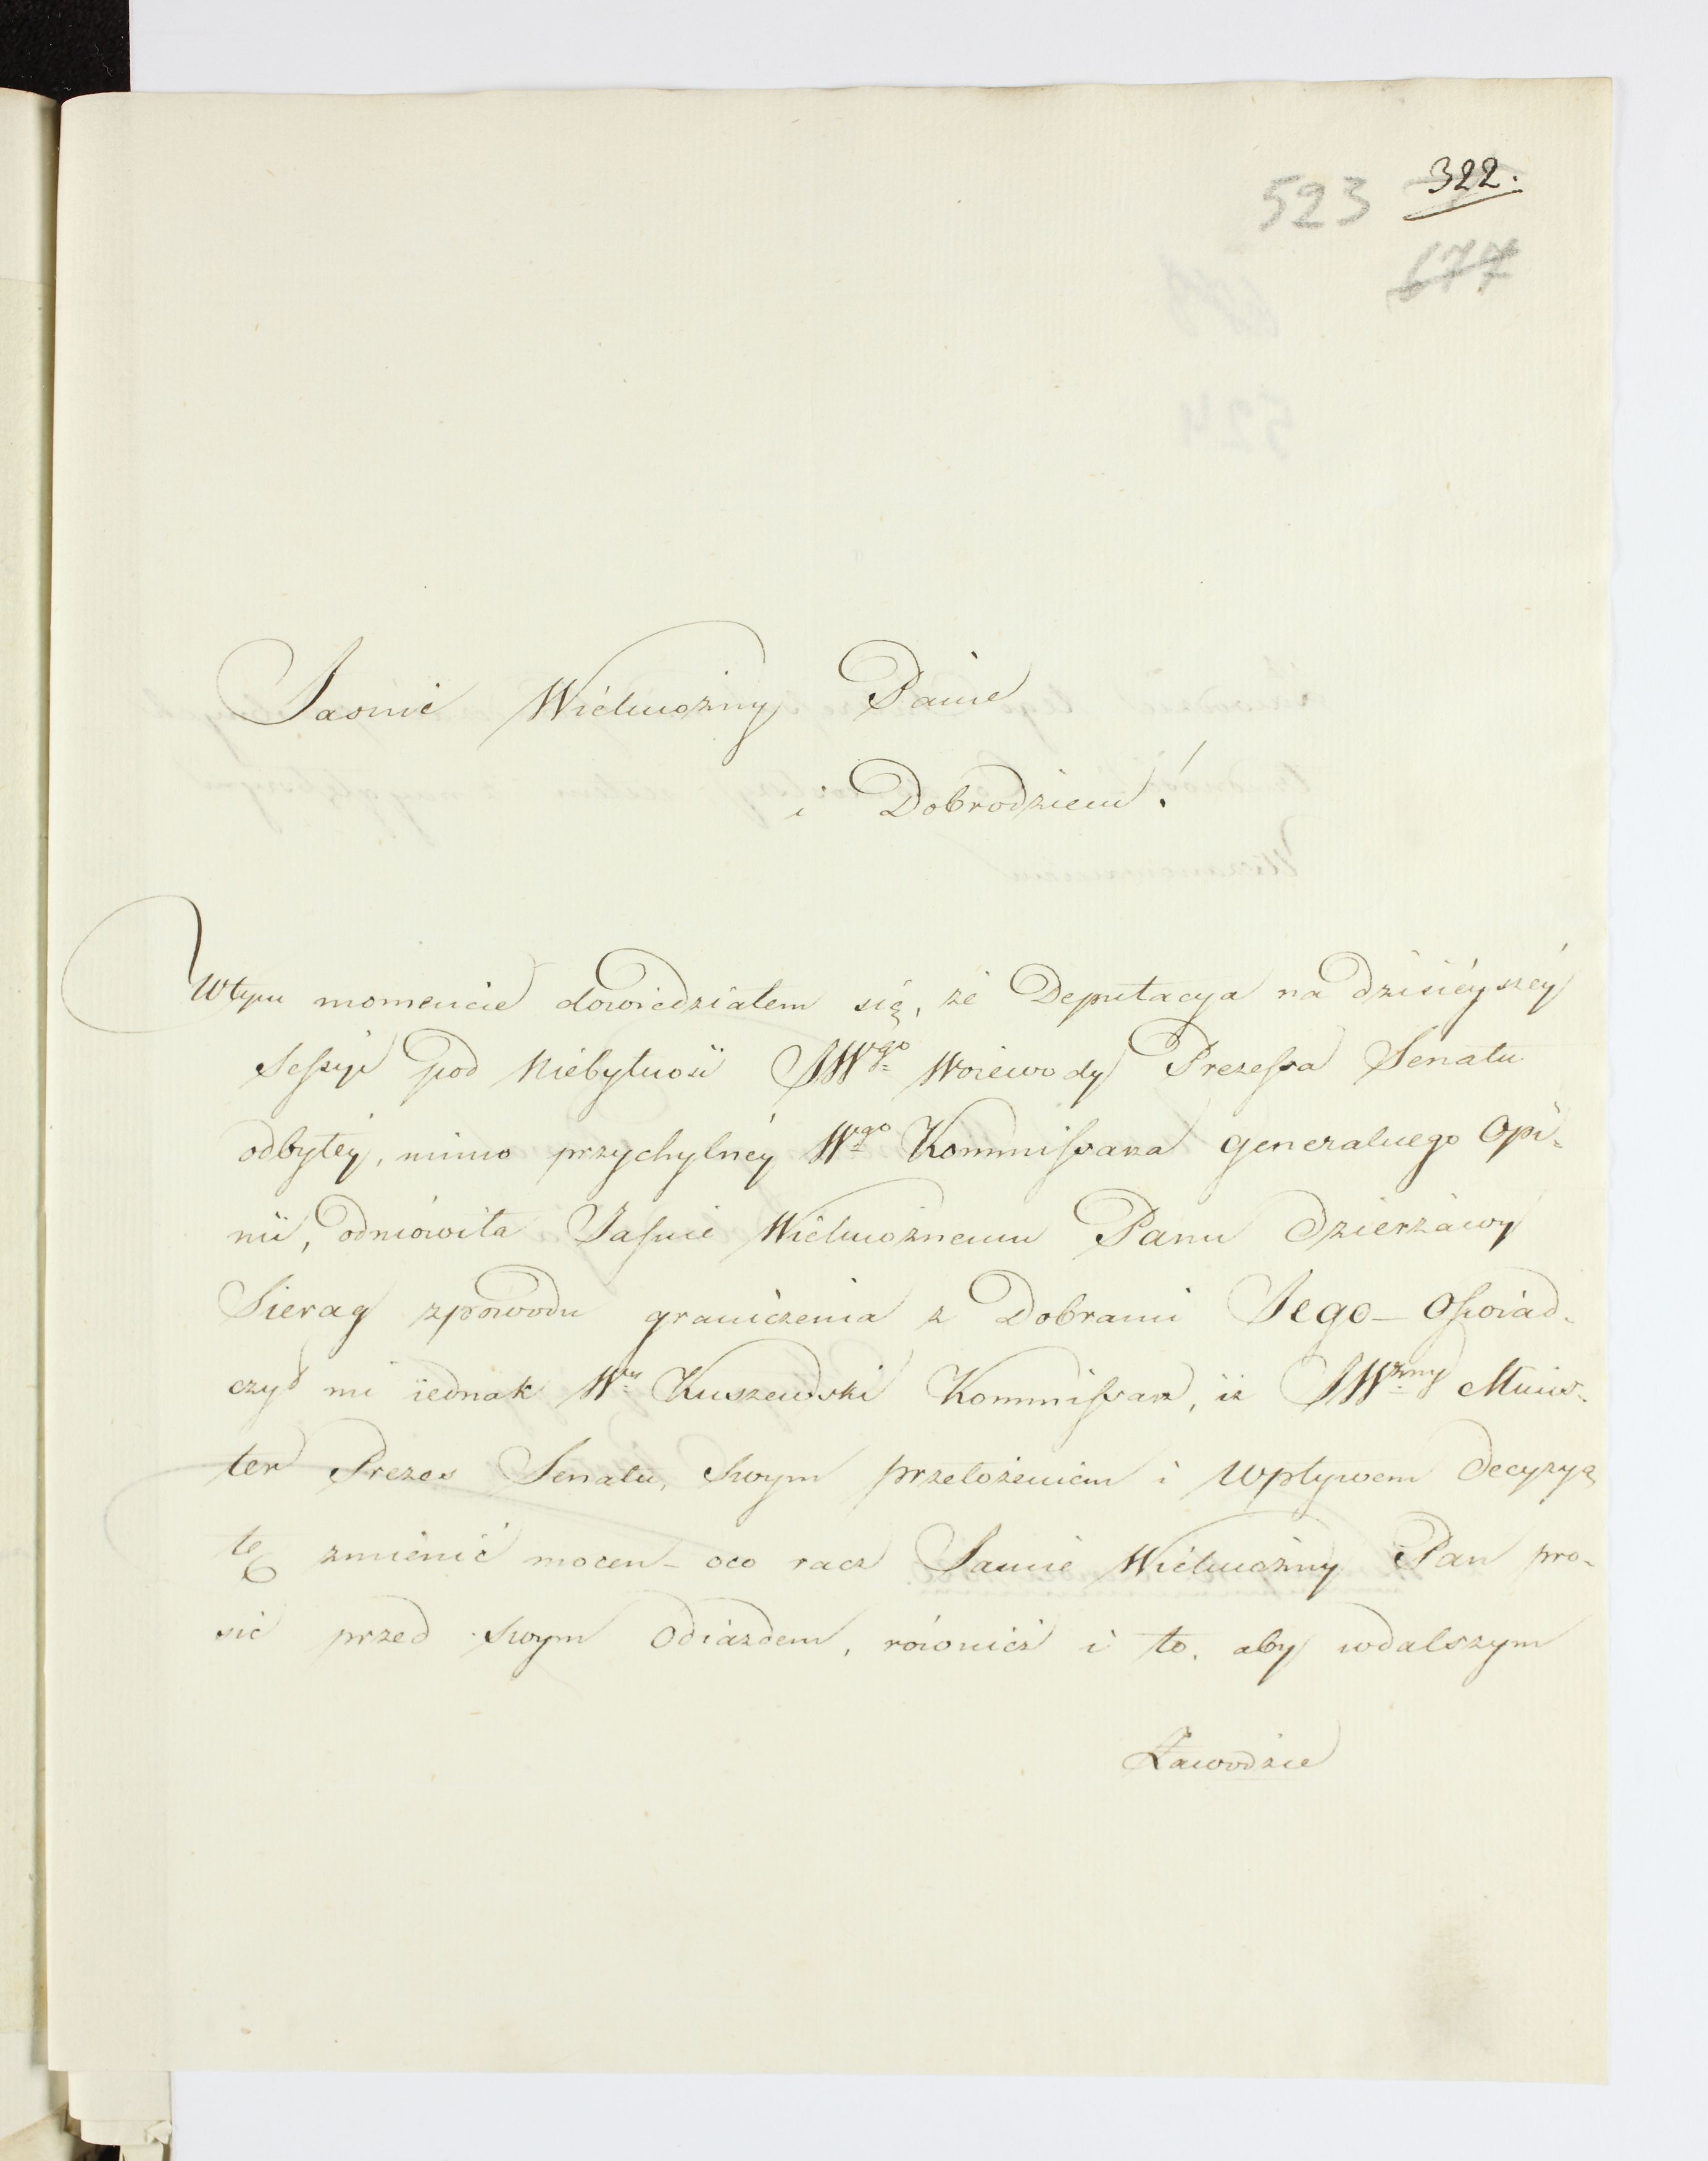 523 322.
677
Jaśnie Wielmożny Panie
i Dobrodzieiu!
Wtym momencie dowiedziałem się, że Deputacya na dzisieyszéy
Sessyi pod niebytność JWgo Woiewody Prezessa Senatu
odbytéy, mimo przychylnéy Wgo Kommissarza generalnego Opi-
nii, odmówiła Jaśnie Wielmożnemu Panu dzierżawy
Sierag zpowodu graniczenia z Dobrami Jego – Oświad-
czył mi iednak Wy Kuszewski Kommissarz, iż JWzny Minis-
ter Prezes Senatu, Swym przełożeniem i wpływem decyzyą
tę zmienić mocen – oco racz Jaśnie Wielmożny Pan pro-
sić przed swym Odiazdem, rówonież i to, aby wdalszym
Zawodzie